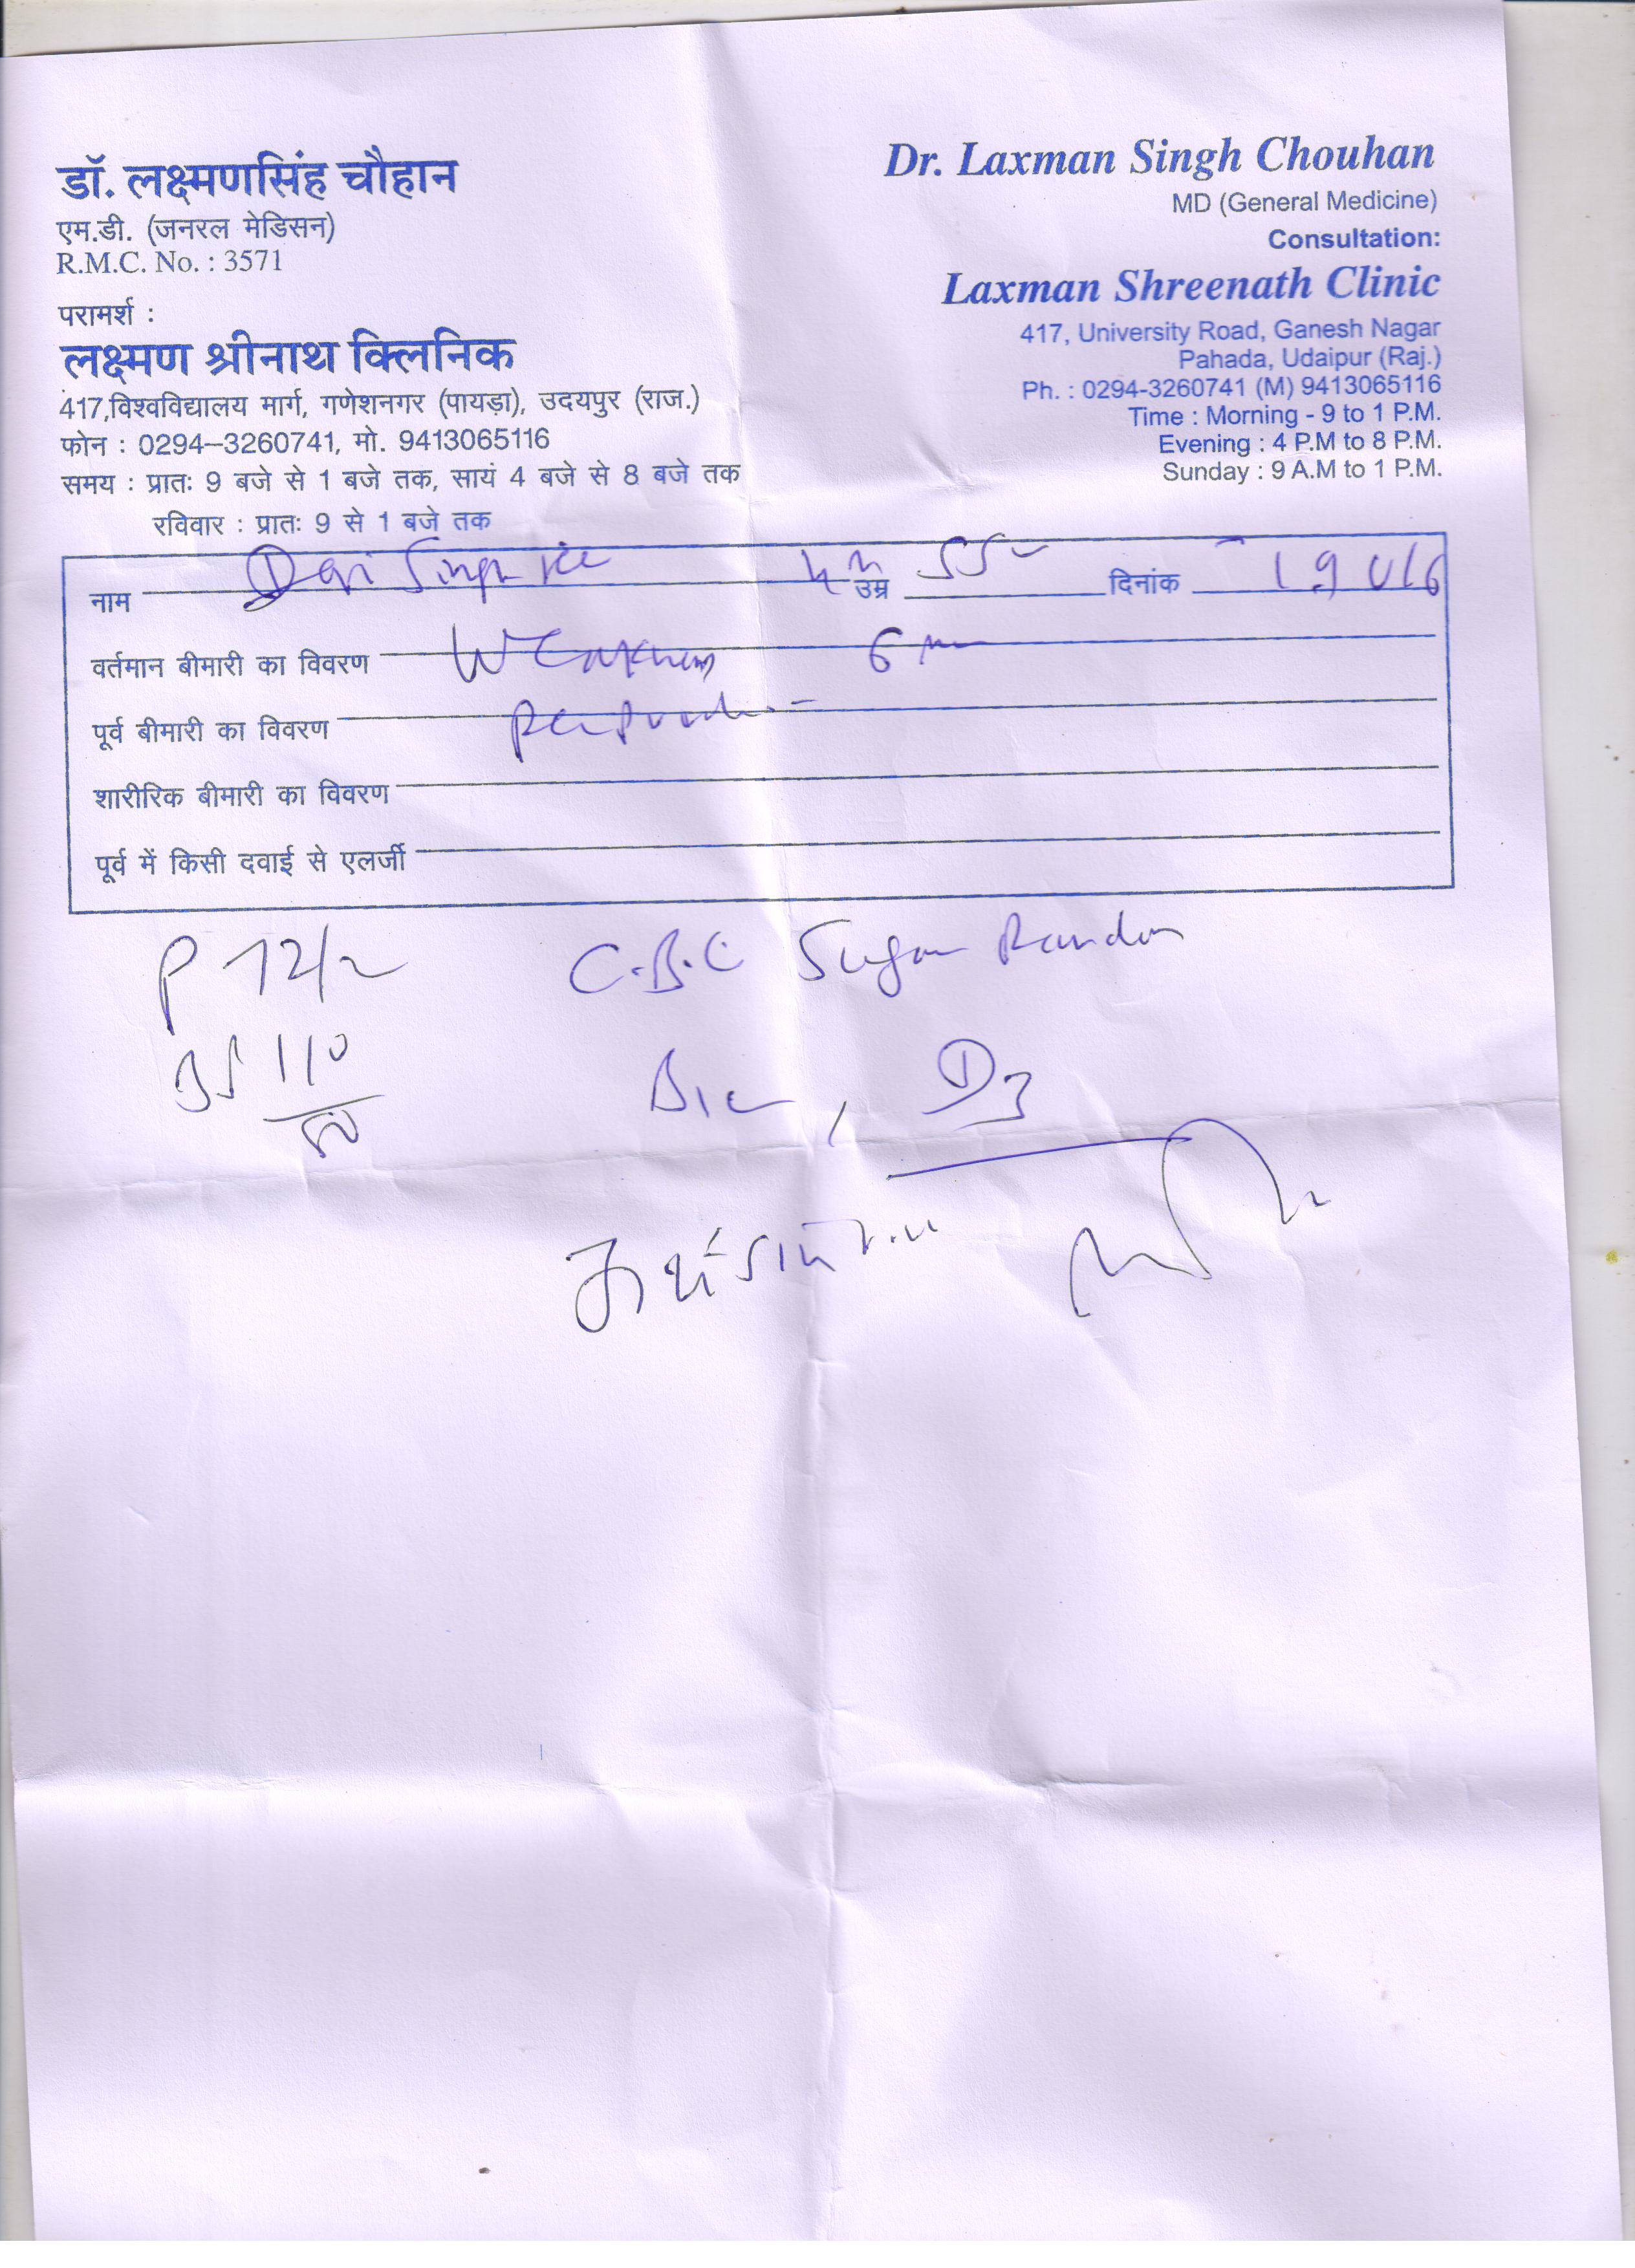 डॉ. लक्ष्मणसिंह चौहान
एम.डी. (जनरल मेडिसन)
R.M.C. No. : 3571
परामर्श :
लक्ष्मण श्रीनाथ क्लिनिक
417,विश्वविद्यालय मार्ग, गणेशनगर (पायड़ा), उदयपुर (राज.)
फोन : 0294–3260741, मो. 9413065116
समय : प्रातः 9 बजे से 1 बजे तक, सायं 4 बजे से 8 बजे तक
रविवार : प्रातः 9 से 1 बजे तक
Dr. Laxman Singh Chouhan
MD (General Medicine)
Consultation:
Laxman Shreenath Clinic
417, University Road, Ganesh Nagar
Pahada, Udaipur (Raj.)
Ph. : 0294-3260741 (M) 9413065116
Time : Morning - 9 to 1 P.M.
Evening : 4 P.M to 8 P.M.
Sunday : 9 A.M to 1 P.M.
नाम उम्र 55 दिनांक
वर्तमान बीमारी का विवरण Weakness
पूर्व बीमारी का विवरण
शारीरिक बीमारी का विवरण
पूर्व में किसी दवाई से एलर्जी
P 72/
C.B.C Sugar Random
110
D3